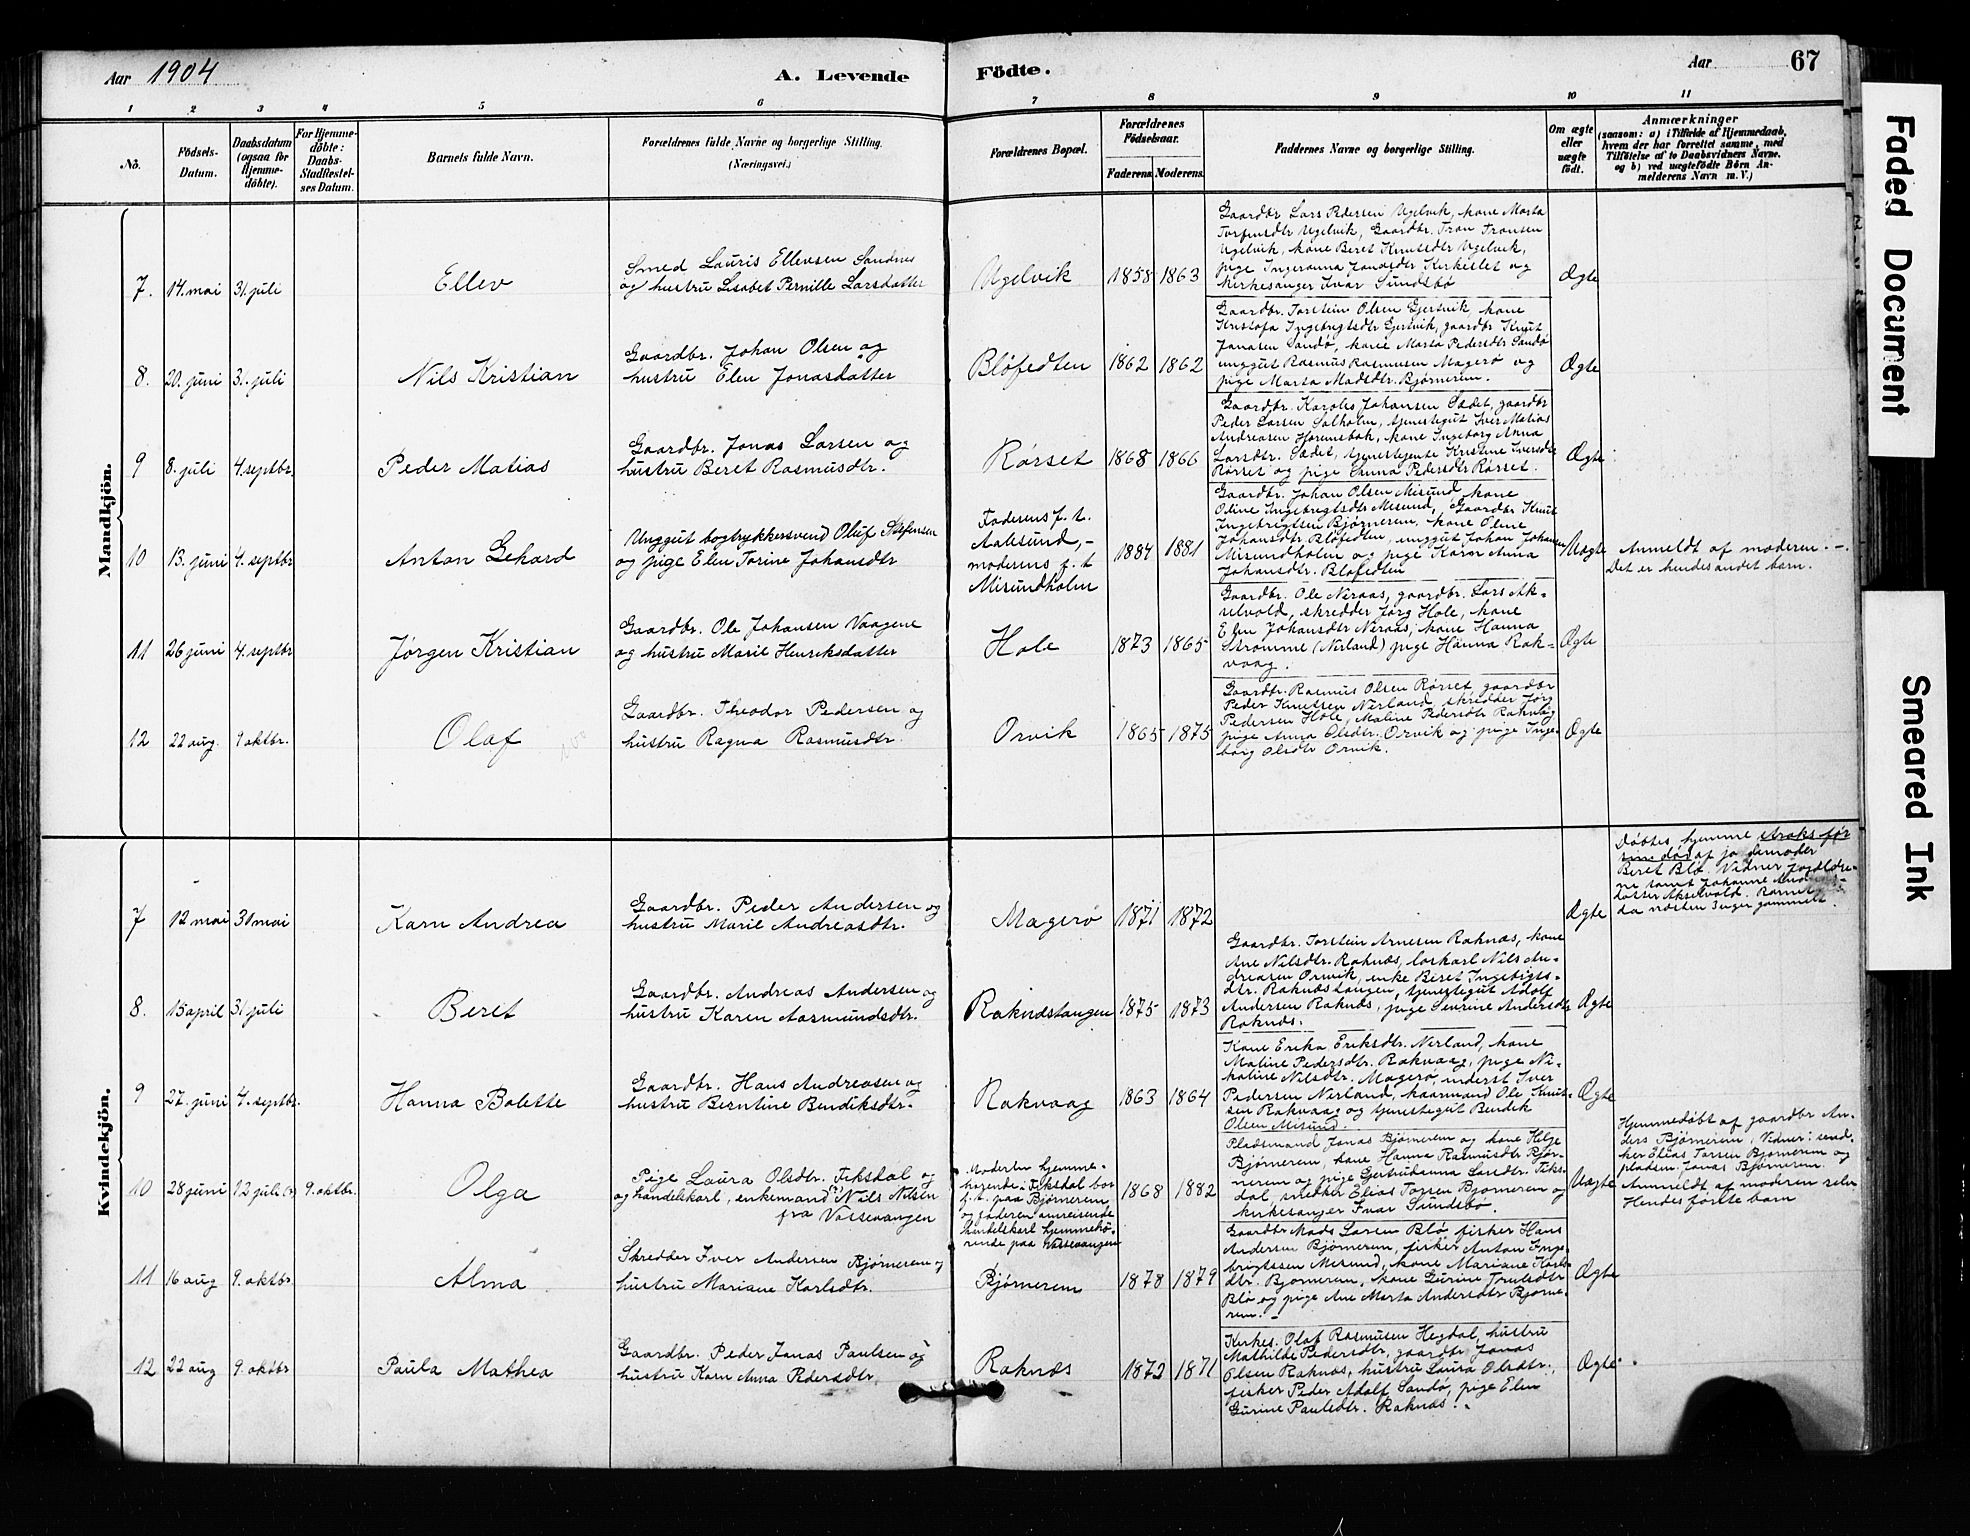 Aar 1904
A. Levende
Födte.
Aar
67
1 2 3 4 5 6 7 8 9 10 11
No.
Födsels-
Datum.
Daabsdatum
(ogsaa for
Hjemme-
döbte).
For Hjemme-
döbte:
Daabs-
Stadfæstel-
ses Datum.
Barnets fulde Navn.
Forældrenes fulde Navne og borgerlige Stilling.
(Næringsvei.)
Forældrenes Bopæl.
Forældrenes
Födselsaar.
Faderens. Moderens.
Faddernes Navne og borgerlige Stilling.
Om ægte
eller
uægte
födt.
Anmærkninger
(saasom: a) i Tilfælde af Hjemmedaab,
hvem der har forrettet samme, med
Tilföielse af to Daabsvidners Navne,
og b) ved uægtefödte Börn An-
melderens Navn m. V.)
Mandkjön.
7. 14. mai 31. juli
Ellev
Smed Lauris Ellevsen Sandnes
og hustru Lisabet Pernille Larsdatter
Ugelvik
1858 1863
Gaardbr. Lars Pedersen Ugelvik, kone Marta
Torfinsdtr Ugelvik, Gaardbr. Tron Tronsen
Ugelvik, kone Beret Knutsdtr Ugelvik,
pige Ingeranna Jonasdtr Kirkeslet og
kirkesanger Ivar Sundsbø
Ægte
8. 20. juni 3. juli
Nils Kristian
Gaardbr. Johan Olsen og
hustru Elen Jonasdatter
Bløfedten
1862 1862
Gaardbr. Torstein Olsen Gjertvik, kone
Kristofa Ingebregtsdtr Gjertvik, gaardbr Knut
Jonasen Sandø, kone Marta Pedersdtr Sandø
unggut Rasmus Rasmusen Magerø og
pige Marta Madsdtr. Bjørnerem.
Ægte
9 8. juli 4. septbr.
Peder Matias
Gaardbr. Jonas Larsen og
hustru Beret Rasmusdtr.
Rørset
1868 1866
Gaardbr. Karoles Johansen Sædet, gaardbr
Peder Larsen Solholm, tjenestegut Iver Matias
Andreasen Horsensbak, kone Ingeborg Anna
Larsdtr. Sædet, tjenestejente Kristine Iversdtr
Rørset og pige Anna Pedersdtr Rørset.
Ægte
10 13. juni 4. septbr
Anton Gehard
Unggut bogtrykkersvend Oluf Steffensen
og pige Elen Torine Johansdtr
Faderens f. t.
Aalesund, -
moderens f. t.
Misundholm
1884 1881
Gaardbr. Johan Olsen Misund, kone
Oline Ingebregtsdtr Misund, Gaardbr Knut
Ingebregtsen Bjørnerem, kone Oline
Johansdtr Bløfedten, unggut Johan Johansen
Misundholm og pige Karn Anna
Johansdtr. Bløfedten
Uægte
Anmeldt af moderen. -
Det er hendes andet barn.
11 26 juni 4. septbr
Jørgen Kristian
Gaardbr. Ole Johansen Vaagene
og hustru Marie Henriksdatter
Hole
1873 1865
Gaardbr. Ole Neraas, gaardbr. Lars Ak-
selvold, skredder Jørg Hole, kone
Elen Johansdtr Neraas, kone Hanna
Strømme (Nerland) pige Hanna Rak-
vaag.
Ægte
12 22 aug. 9 oktbr.
Olaf
Gaardbr. Theodor Pedersen og
hustru Ragna Rasmusdtr.
Orvik
1865 1875
Gaardbr. Rasmus Olsen Rørset, gaardbr
Peder Knutsen Nerland, skredder Jørg
Pedersen Hole, Maline Pedersdtr Rakvaag
pige Anna Olsdtr. Orvik og pige Inge-
borg Olsdtr Orvik.
Ægte
Kvindekjön.
7 12 mai 31 mai
Karn Andrea
Gaardbr. Peder Andersen og
hustru Marie Andreasdtr.
Magerø
1871 1872
Ægte
Døbtes hjemme straks før
sin død af jordemoder
Beret Blø. Vidner Forældre-
ne samt Johanne
datter Akselvold. Barnet
da næsten 3 uger gammelt.
8. 15 april 31 juli
Beret
Gaardbr. Andreas Andersen og
hustru Karen Aasmundsdtr.
Raknæstangen
1875 1873
Gaardbr. Torstein Arnesen Raknæs, kone
Ane Nilsdtr. Raknæs, løskarl Nils An-
dreasen Orvik, enke Beret Ingebrigts-
dtr. Raknæstangen, tjenestegut Adolf
Andersen Raknæs, pige Severine Andersdtr
Raknæs.
Ægte
9 27. juni 4. septbr.
Hanna Bolette
Gaardbr. Hans Andreasen og
hustru Berntine Bendiksdtr.
Rakvaag
1863 1864
Kone Erika Eriksdtr. Nerland, kone
Maline Pedersdtr. Rakvaag, pige Ni-
koline Nilsdtr. Magerø, inderst Iver
Pedersen Nerland, kaarmand Ole Knut-
sen Rakvaag og tjenestegut Bendik
Olsen Misund.
Ægte
10 28 juni 12 juli 9. oktbr.
Olga
Pige Laura Olsdtr. Fiksdal og
og handelskarl, enkemand Nils Nilsen
fra Vossevangen
Moderen hjemme-
hørende i Fiksdal bor
f. t. paa Bjørnerem
og faderen omreisende
handelskarl hjemmehø-
rende paa Vossevangen
1868 1882
Pladsmand Jonas Bjørnerem og kone Helge
Bjørnerem, kone Hanna Rasmusdtr Bjør-
nerem og pige Gertrudanna Larsdtr. Fiks-
dal, snedker Elias Torsen Bjørnerem og
kirkesanger Ivar Sundsbø.
Uægte
Hjemmedøbt af gaardbr An-
ders Bjørnerem, Vidner: sned-
ker Elias Torsen Bjørnerem og
pladsm. Jonas Bjørnerem.
Anmeldt af moderen selv
Hendes første barn
11 16 aug 9. oktbr
Alma
Skredder Iver Andersen Bjørnerem og
hustru Mariane Karlsdtr.
Bjørnerem
1878 1879
Gaardbr Mads Larsen Blø, fisker Hans
Andersen Bjørnerem, fisker Anton Inge-
brigtssen Misund, kone Mariane Karls-
dtr. Bjørnerem, kone Gurine Tronsdtr
Blø og pige Ane Marta Andersdtr Bjørne-
rem. -
Ægte
12 22 aug 9. oktbr
Paula Mathea
Gaardbr. Peder Jonas Paulsen og
hustru Karn Anna Pedersdtr.
Raknæs
1872 1871
Kirkes. Olaf Rasmusen Hegdal, hustru
Mathilde Pedersdtr, gaardbr Jonas
Olsen Raknæs, hustru Laura Olsdtr.,
fisker Peder Adolf Sandø, pige Elen
Gurine Paulsdtr. Raknæs.
Ægte
Faded Document
Smeared Ink